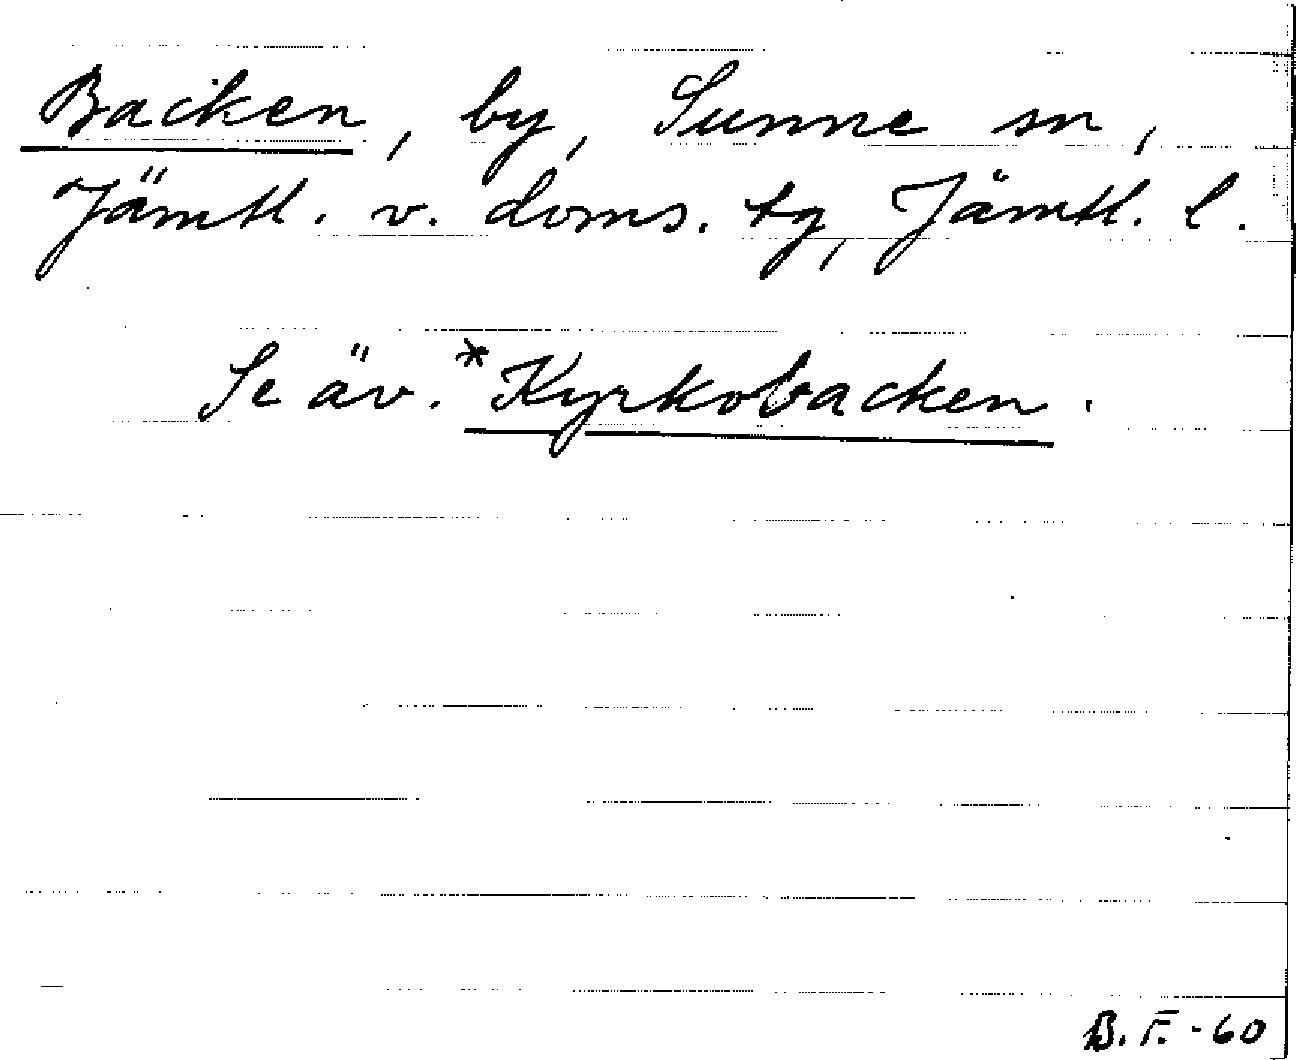 Backen, by, Sunne sn,
Jämtl. v. doms. tg, Jämtl. l.
Se äv. *Kyrkobacken.
B.F.-60